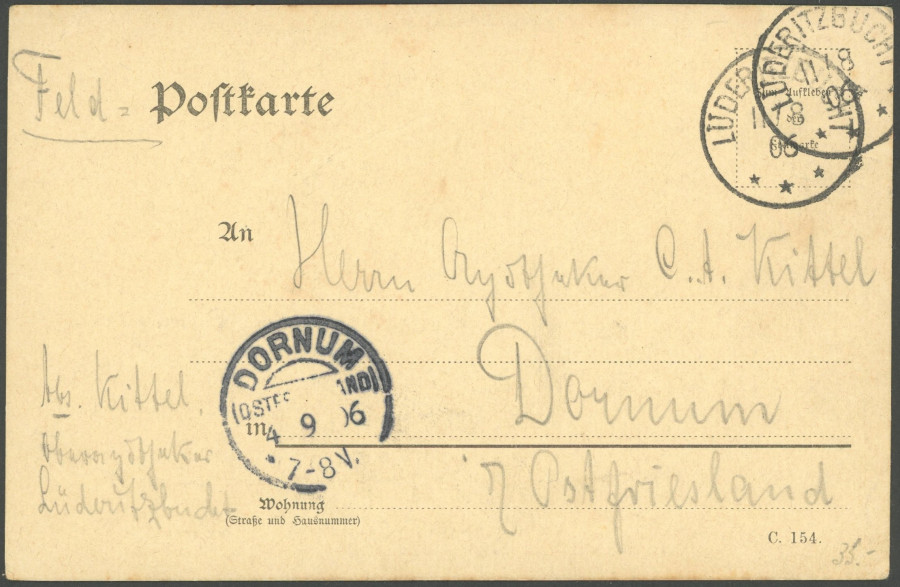 Feld=Postkarte
LÜDERITZBUCHT
11/8
06
LÜDERITZBUCHT
11/8
06
Zum Aufkleben
der
An
Herrn Apotheker C. A. Kittel
DORNUM
(OSTFRIESLAND)
4 9 06
7-8V.
in
Dornum
i/ Ostfriesland
Abs. Kittel,
Oberapotheker
Lüderitzbucht
Wohnung
(Straße und Hausnummer)
C. 154.
35.-